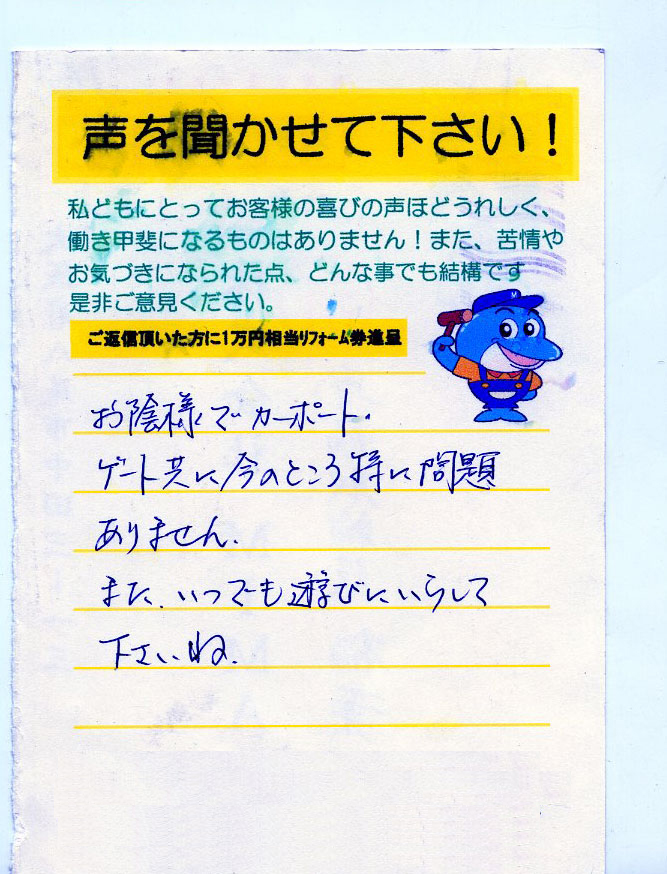 声を聞かせて下さい！
私どもにとってお客様の喜びの声ほどうれしく、
働き甲斐になるものはありません！また、苦情や
お気づきになられた点、どんな事でも結構です
是非ご意見ください。
ご返信頂いた方に1万円相当リフォーム券進呈
M
お陰様でカーポート.
ゲート共に今のところ特に問題
ありません.
また、いつでも遊びにいらして
下さいね.